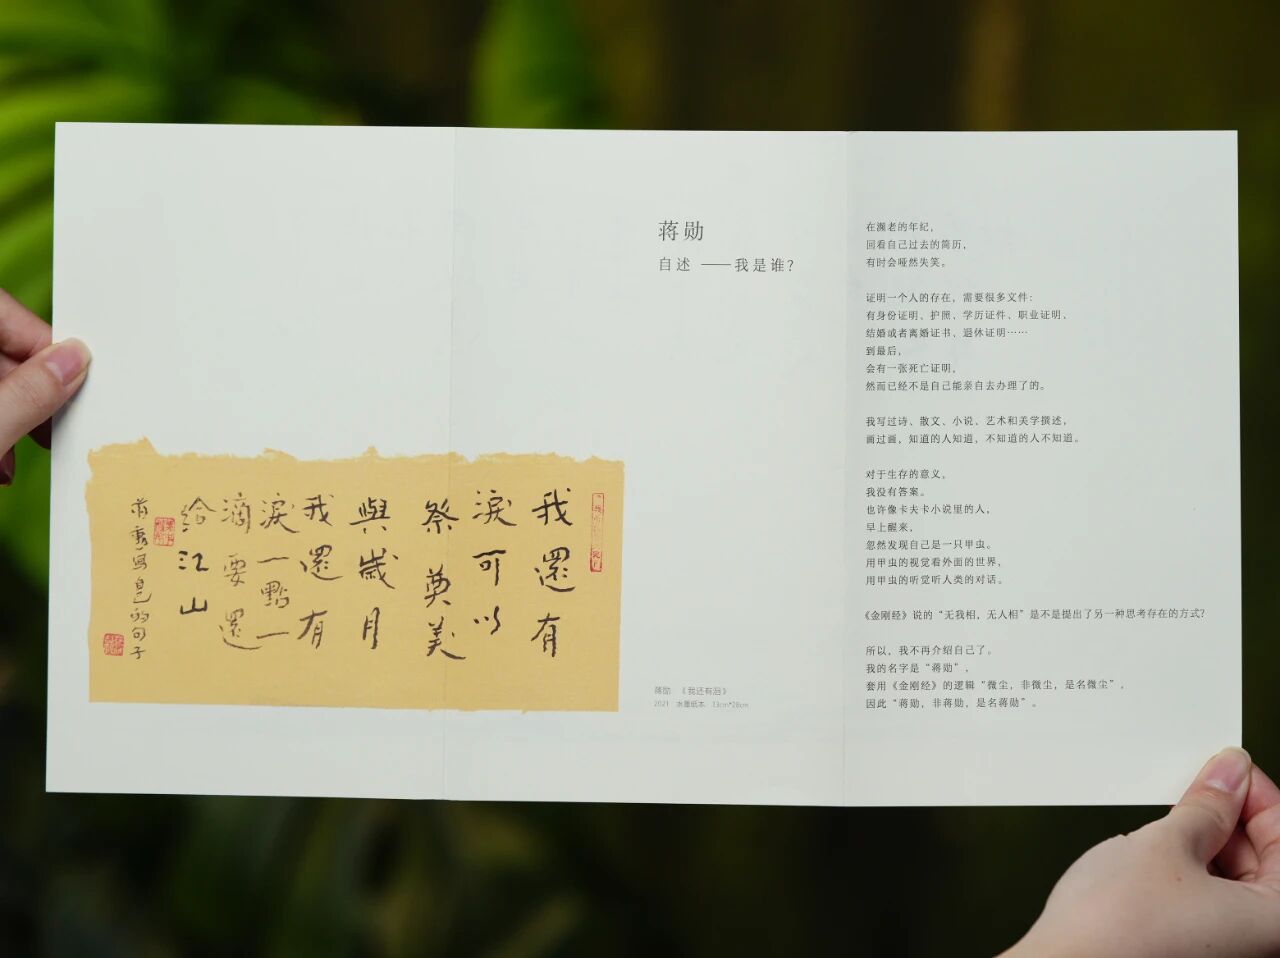 我還有
淚可以
祭奠美
與歲月
我還有
淚一點一
滴要還
給江山
蒋勳寫自己的句子
蒋勋
自述 ——我是谁?
蒋勋 《我还有泪》
2021 水墨纸本 13cm*28cm
在濒老的年纪，
回看自己过去的简历，
有时会哑然失笑。
证明一个人的存在，需要很多文件：
有身份证明、护照、学历证件、职业证明、
结婚或者离婚证书、退休证明……
到最后，
会有一张死亡证明，
然而已经不是自己能亲自去办理了的。
我写过诗、散文、小说、艺术和美学撰述，
画过画，知道的人知道，不知道的人不知道。
对于生存的意义，
我没有答案。
也许像卡夫卡小说里的人，
早上醒来，
忽然发现自己是一只甲虫。
用甲虫的视觉看外面的世界，
用甲虫的听觉听人类的对话。
《金刚经》说的“无我相，无人相”是不是提出了另一种思考存在的方式?
所以，我不再介绍自己了。
我的名字是“蒋勋”，
套用《金刚经》的逻辑“微尘，非微尘，是名微尘”，
因此“蒋勋，非蒋勋，是名蒋勋”。